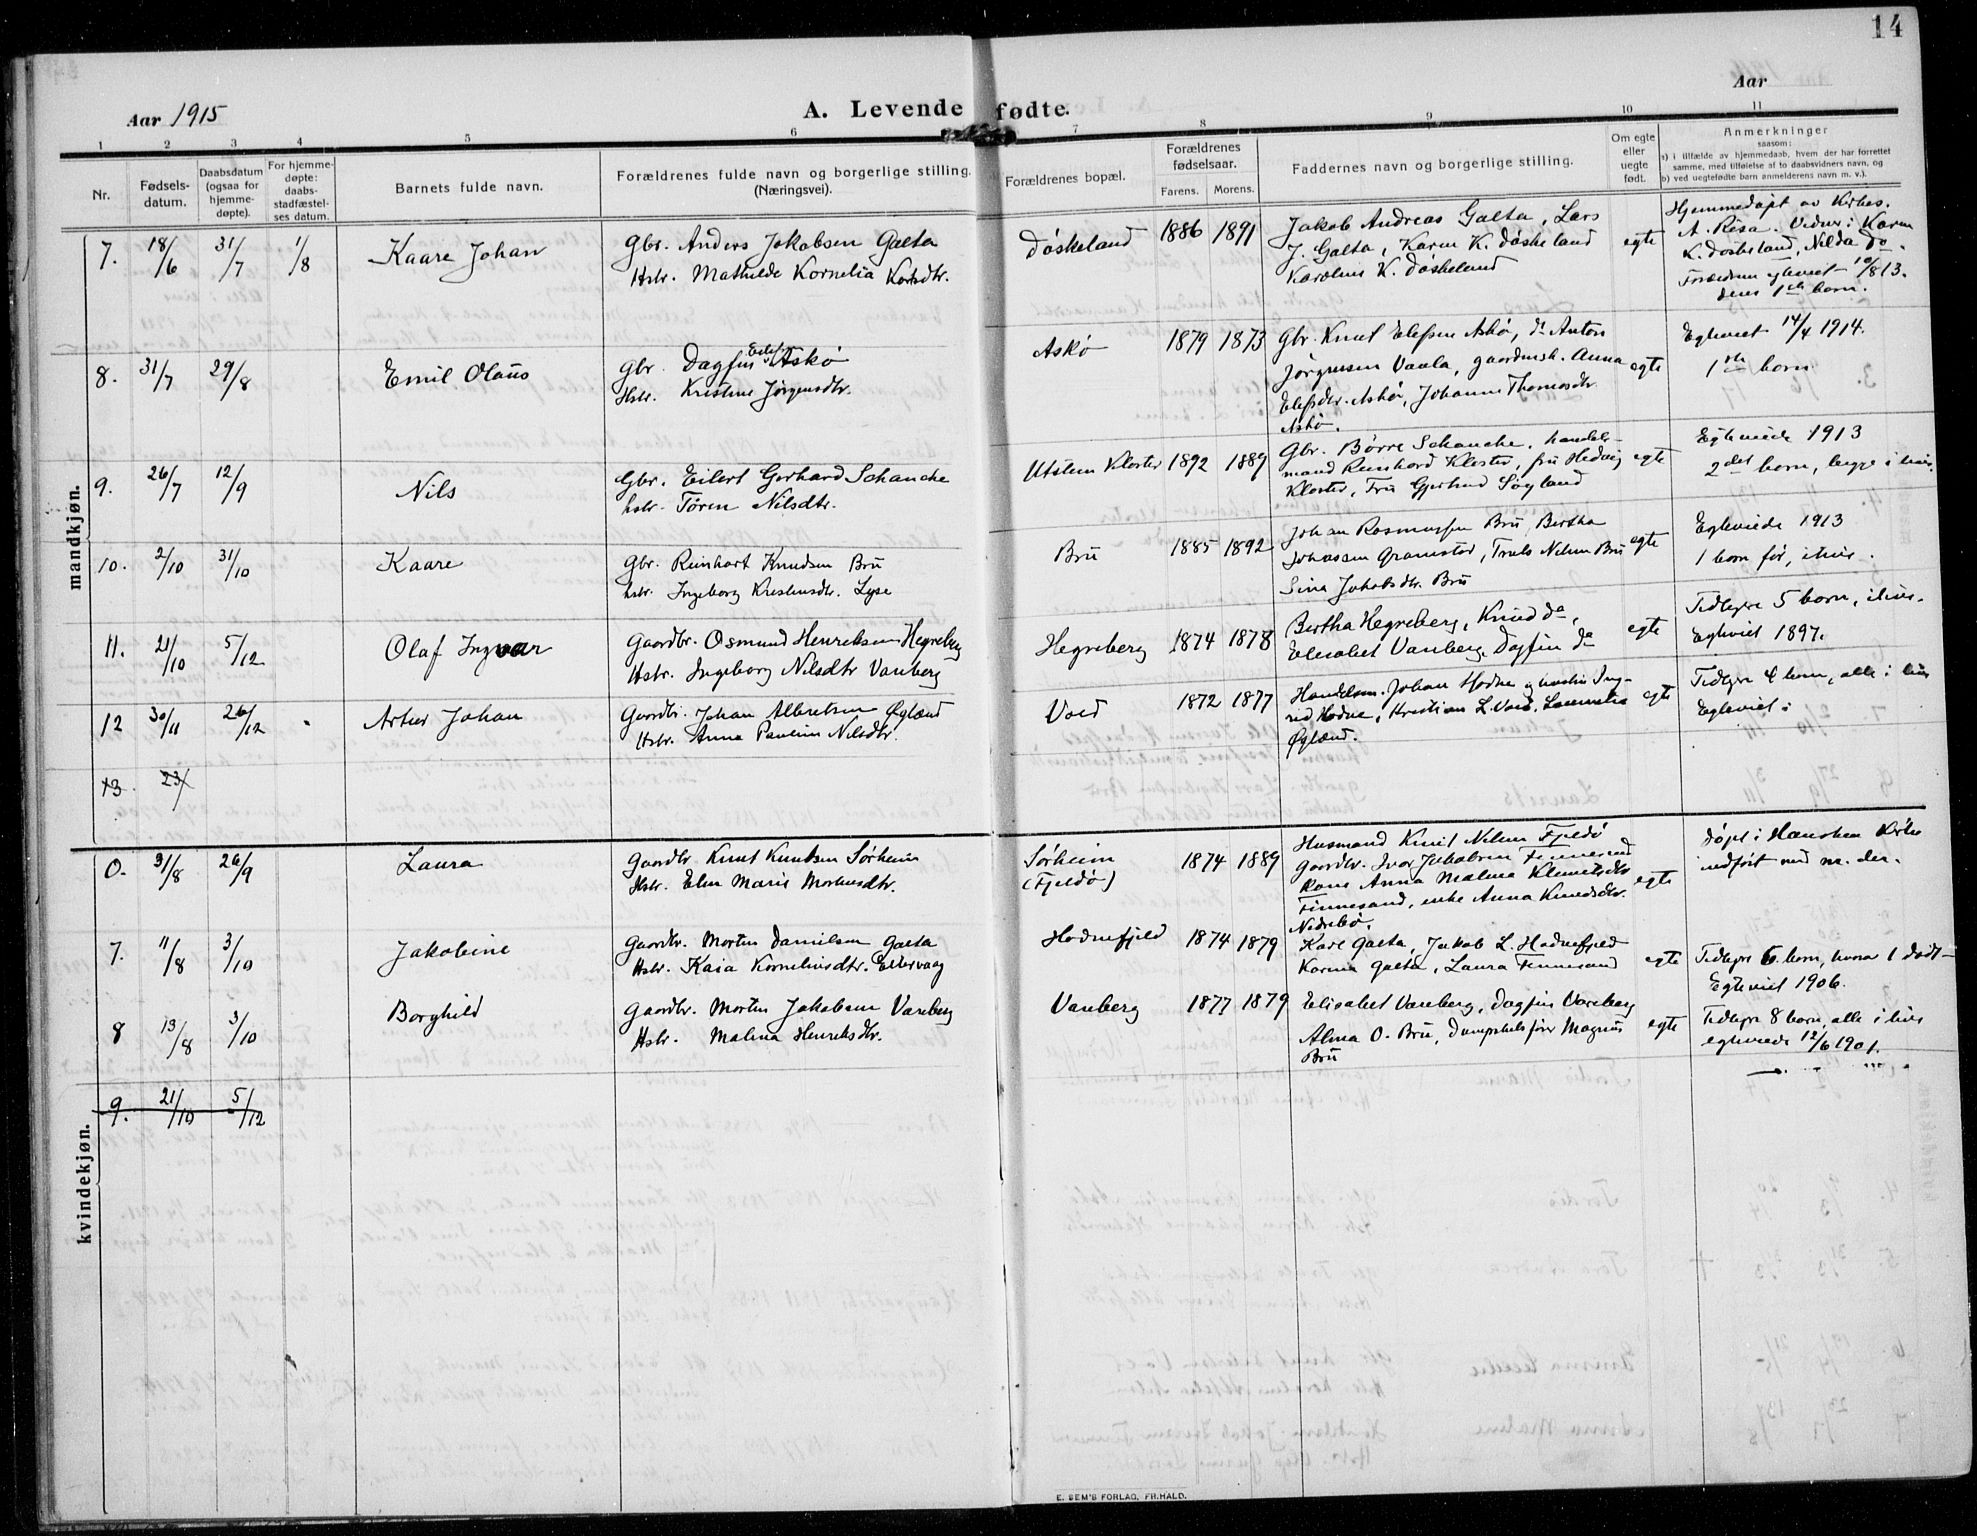 14
Aar 1915
A. Levende fødte.
Aar
1 2 3 4 5 6 7 8 9 10 11
Nr.
Fødsels-
datum.
Daabsdatum
(ogsaa for
hjemme-
døpte).
For hjemme-
døpte:
daabs-
stadfæstel-
ses datum.
Barnets fulde navn.
Forældrenes fulde navn og borgerlige stilling.
(Næringsvei).
Forældrenes bopæl.
Forældrenes
fødselsaar.
Farens. Morens.
Faddernes navn og borgerlige stilling.
Om egte
eller
uegte
født.
Anmerkninger
saasom:
a) i tilfælde av hjemmedaab, hvem der har forrettet
samme, med tilføielse af to daabsvidners navn, og
b) ved uegtefødte barn anmelderens navn m. v.).
mandkjøn.
7. 18/6 31/7 1/8 Kaare Johan
Gbr. Anders Jakobsen Galta
Hstr. Mathilde Kornelia Korlsdtr.
Døskeland 1886 1891
Jakob Andreas Galta, Lars
J. Galta, Karen K. Døskeland
Karoline K. Døskeland
egte
Hjemmedøpt av Kirkes.
A. Resa. Vidner: Karen
K. Døskeland, Nilda do.
Forældrene egteviet 10/8 13.
deres 1ste barn.
8. 31/7 29/8 Emil Olaus
Gbr. Dagfin Elefsen Askø
Hstr. Kristine Jørgensdtr.
Askø 1879 1873
Gbr. Knut Elefsen Askø, do Anton
Jørgensen Vaula, gaardmsk. Anna
Elefsdtr. Askø, Johanne Thomasdtr.
Askø.
egte
Egteviet 14/4 1914.
1ste barn
9. 26/7 12/9 Nils
Gbr. Eilert Gerhard Schanche
hstr. Tören Nilsdtr.
Utstein Kloster 1892 1889
Gbr. Børre Schanche, handels-
mand Reinhard Kloster, fru Hedvig
Kloster, Fru Gjertrud Søyland
egte
Egteviede 1913
2det barn, begge i live.
10. 2/10 31/10 Kaare
Gbr. Reinhart Knudsen Bru
hstr. Ingeborg Kristensdtr. Lyse
Bru 1885 1892
Johan Rasmussen Bru, Bertha
Johasen Gramstad, Truls Nilsen Bru
Sina Jakobsdtr. Bru
egte
Egteviede 1913
1 barn før, i live.
11. 21/10 5/12 Olaf Ingvar
Gaardbr. Osmund Henriksen Hegreberg
Hstr. Ingeborg Nilsdtr Vareberg
Hegreberg 1874 1878
Bertha Hegreberg, Knud do,
Elisabet Vareberg, Dagfin do
egte
Tidligere 5 barn, i live.
Egteviet 1897.
12 30/11 26/12 Artur Johan
Gaardbr. Johan Albretsen Øglænd
Hstr. Anna Pauline Nilsdtr.
Void 1872 1877
Handelsm. Johan Hodne og hustru Ing-
rid Hodne, Kristian L. Void,
Øglænd.
egte
Tidligere 4 barn, alle i live
Egteviet i
13 23/
kvindekjøn.
0. 31/8 26/9 Laura
Gaardbr Knut Knutsen Sørheim
Hstr. Elen Marie Mortensdtr.
Sørheim
(Fjeldø)
1874 1889
Husmand Knut Nilsen Fjeldø
Gaardbr. Ivar Jakobsen Finnesand
Kone Anna Malena Klemetsdtr
Finnesand, enke Anna Knudsdtr.
Nedrebø.
egte
Døpt i Hausken Kirke
indført med nr. der.
7. 11/8 3/10 Jakobine
Gaardbr. Morten Danielsen Galta
Hstr. Kaia Korneliusdtr. Eltervaag
Hodnefjeld 1874 1879
Karl Galta, Jakob L. Hodnefjeld
Karina Galta, Laura Finnesand
egte
Tidligere 6 barn, hvorav 1 dødt
Egteviet 1906.
8 13/8 3/10 Borghild
Gaardbr. Morten Jakobsen Vareberg
Hstr. Malena Henriksdtr.
Vareberg 1877 1879
Elisabet Vareberg, Dagfin Vareberg
Alma O. Bru, Dampskibsfører Magnus
Bru
egte
Tidligere 8 barn, alle i live
egteviede 12/6 1901.
9. 21/10 5/12
E. SEM'S FORLAG, FR.HALD.